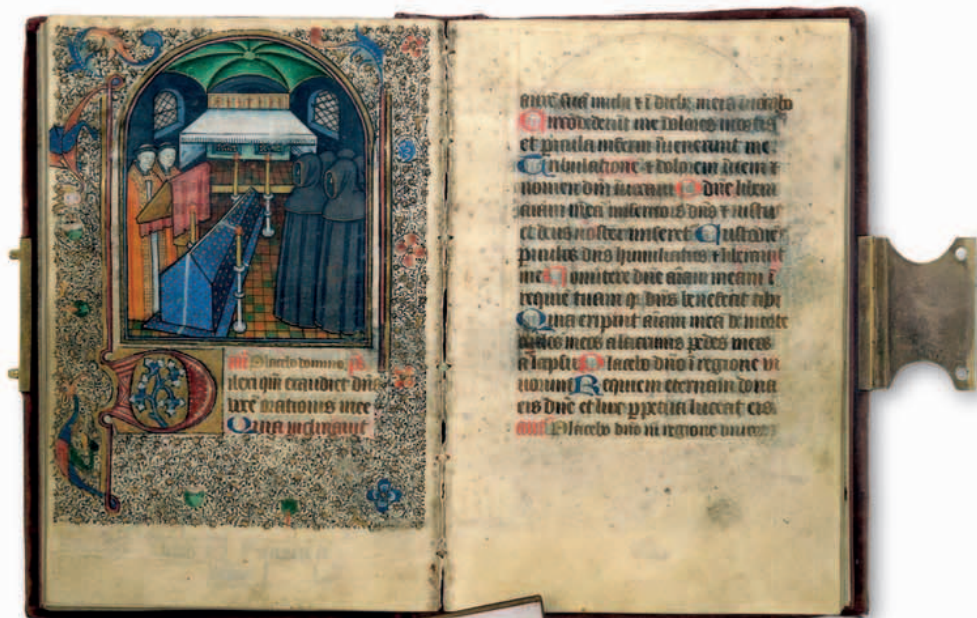 añ Placebo domino. p̄s
Dilexi qm̄ exaudiet dn̄s
voce orationis mee
Quia inclinauit
aurē suā michi ⁊ ī dieb; meis īuocabo
Circūdederūt me dolores mortis
et picula inferni īuenerunt me
Tribulationē ⁊ dolorem īueni ⁊
nomen dn̄i īuocaui O dn̄e libera
aīam meā misericors dn̄s ⁊ iustus
et deus noster miseret Custodiēs
puulos dn̄s humiliatus liberauit
me Conuertere dn̄e aīam meam ī
requiē tuam q; dn̄s benefecit tibi
Quia eripuit aīam meā de morte
oculos meos a lacrimis pedes meos
a lapsu Placebo dn̄o ī regione vi
uorum Requiem eternam dona
eis dn̄e et lux ppetua luceat eis
añt Placebo dn̄o in regione viuorꝫ